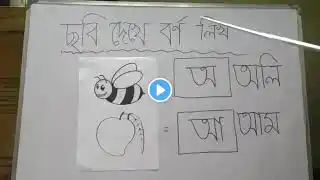 ছবি দেখে বর্ণ লিখ
অ অলি
= আ আম